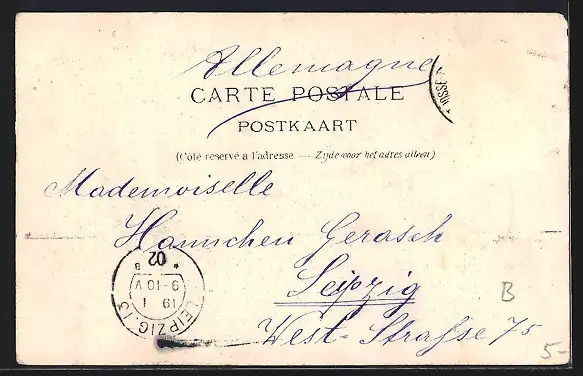 Allemagne
CARTE POSTALE
POSTKAART
(Côté réservé à l'adresse — Zijde voor het adres alleen)
Mademoiselle
Hannchen Gerasch
Leipzig
West-Straße 75
LEIPZIG 13
19 1
9-10 V
* 02 B
B
5-